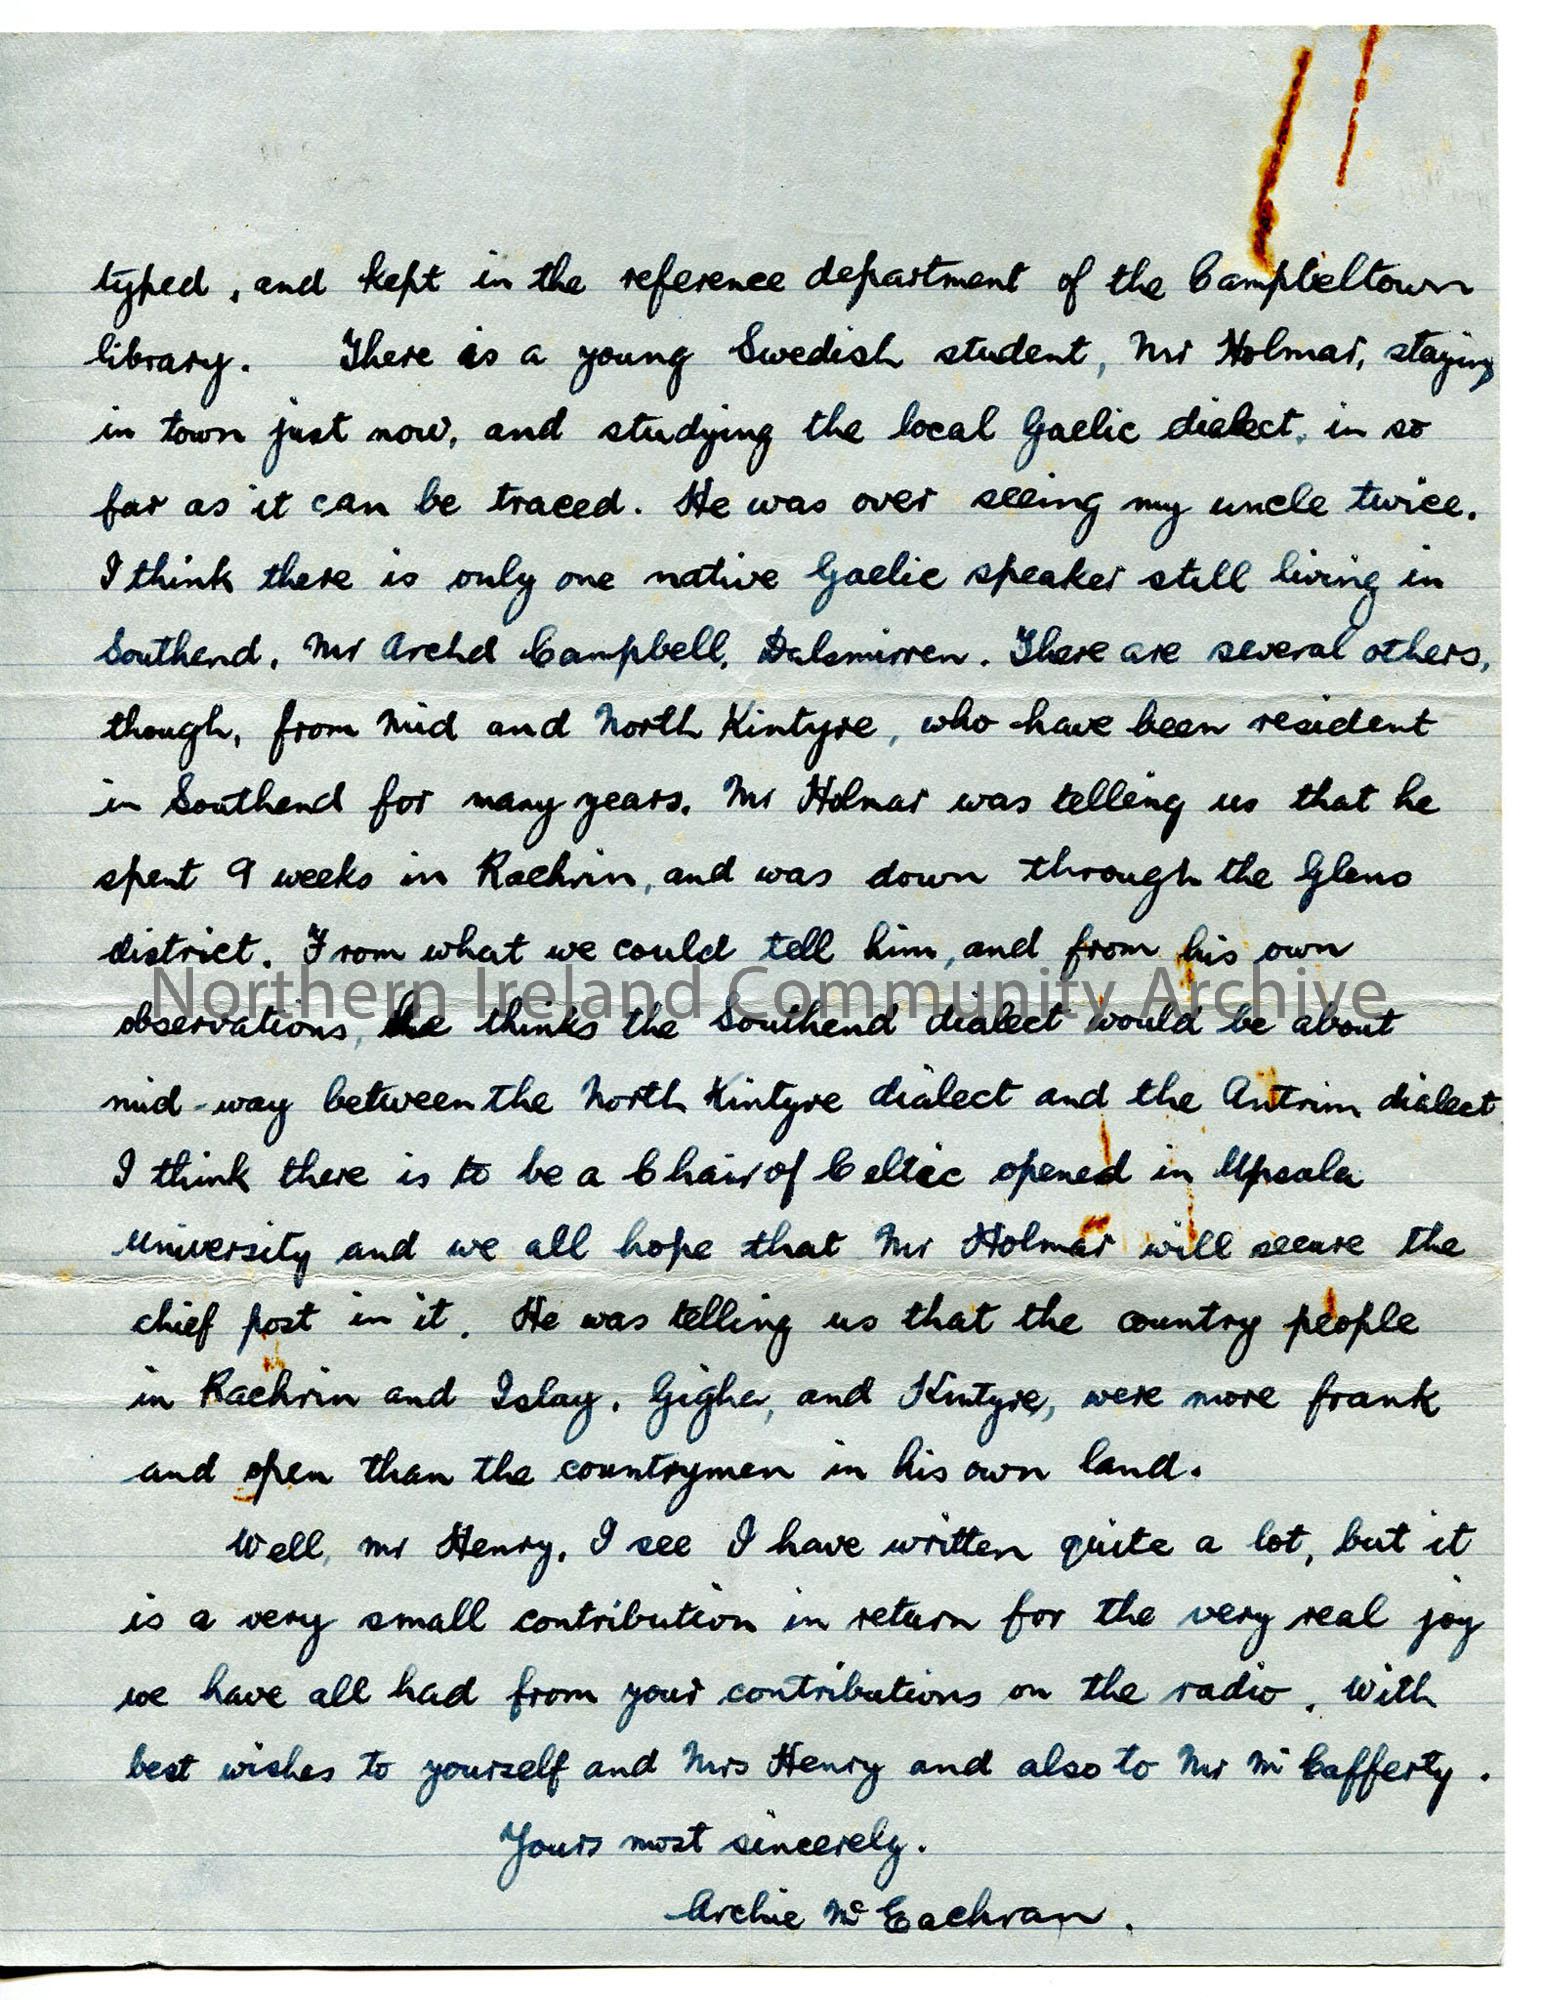 typed, and kept in the reference department of the Campbeltown
library. There is a young Swedish student, Mr Holmar, staying
in town just now, and studying the local Gaelic dialect, in so
far as it can be traced. He was over seeing my uncle twice.
I think there is only one native Gaelic speaker still living in
Southend, Mr Archd Campbell, Dalsmirren. There are several others,
though, from Mid and North Kintyre, who have been resident
in Southend for many years. Mr Holmar was telling us that he
spent 9 weeks in Rachrin, and was down through the Glens
district. From what we could tell him, and from his own
Northern Ireland Community Archive
observations, he thinks the Southend dialect would be about
mid-way between the North Kintyre dialect and the Antrim dialect.
I think there is to be a Chair of Celtic opened in Upsala
University and we all hope that Mr Holmar will secure the
chief post in it. He was telling us that the country people
in Rachrin and Islay, Gigha, and Kintyre, were more frank
and open than the countrymen in his own land.
Well, Mr Henry, I see I have written quite a lot, but it
is a very small contribution in return for the very real joy
we have all had from your contributions on the radio. With
best wishes to yourself and Mrs Henry and also to Mr McCafferty.
Yours most sincerely.
Archie McEachran.